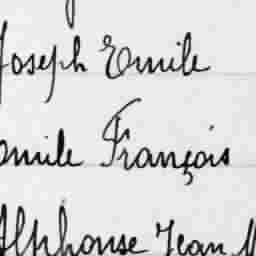 Joseph Emile
Emile François
Alphonse Jean